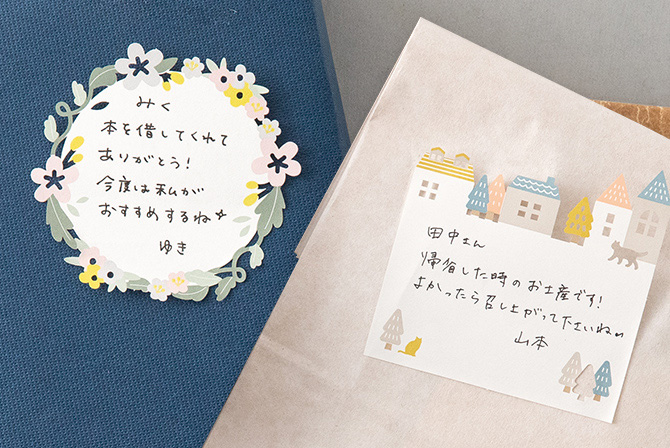 みく
本を借してくれて
ありがとう!
今度は私が
おすすめするね☆
ゆき
田中さん
帰省した時のお土産です!
よかったら召し上がって下さいね
山本